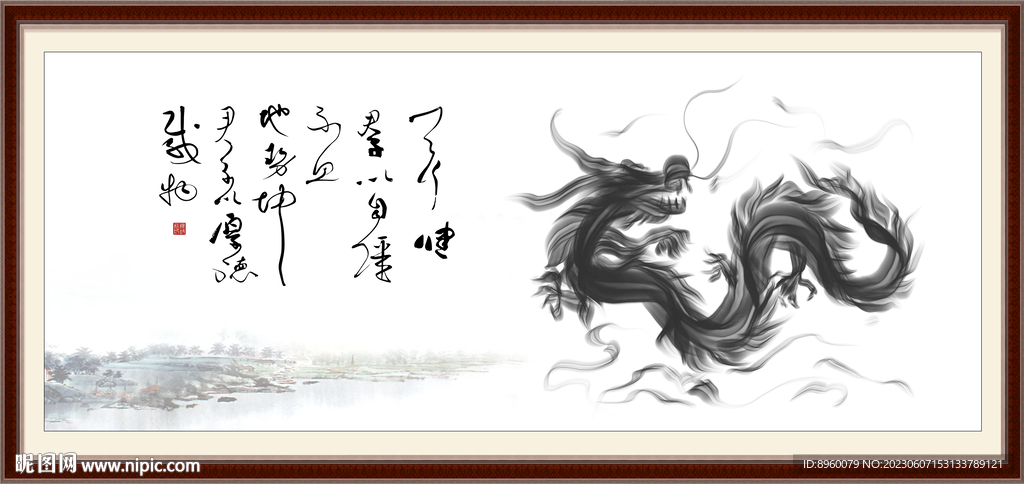 天行健
君子以自强
不息
地势坤
君子以厚德
载物
昵图网 www.nipic.com
ID:8960079 NO:20230607153133789121